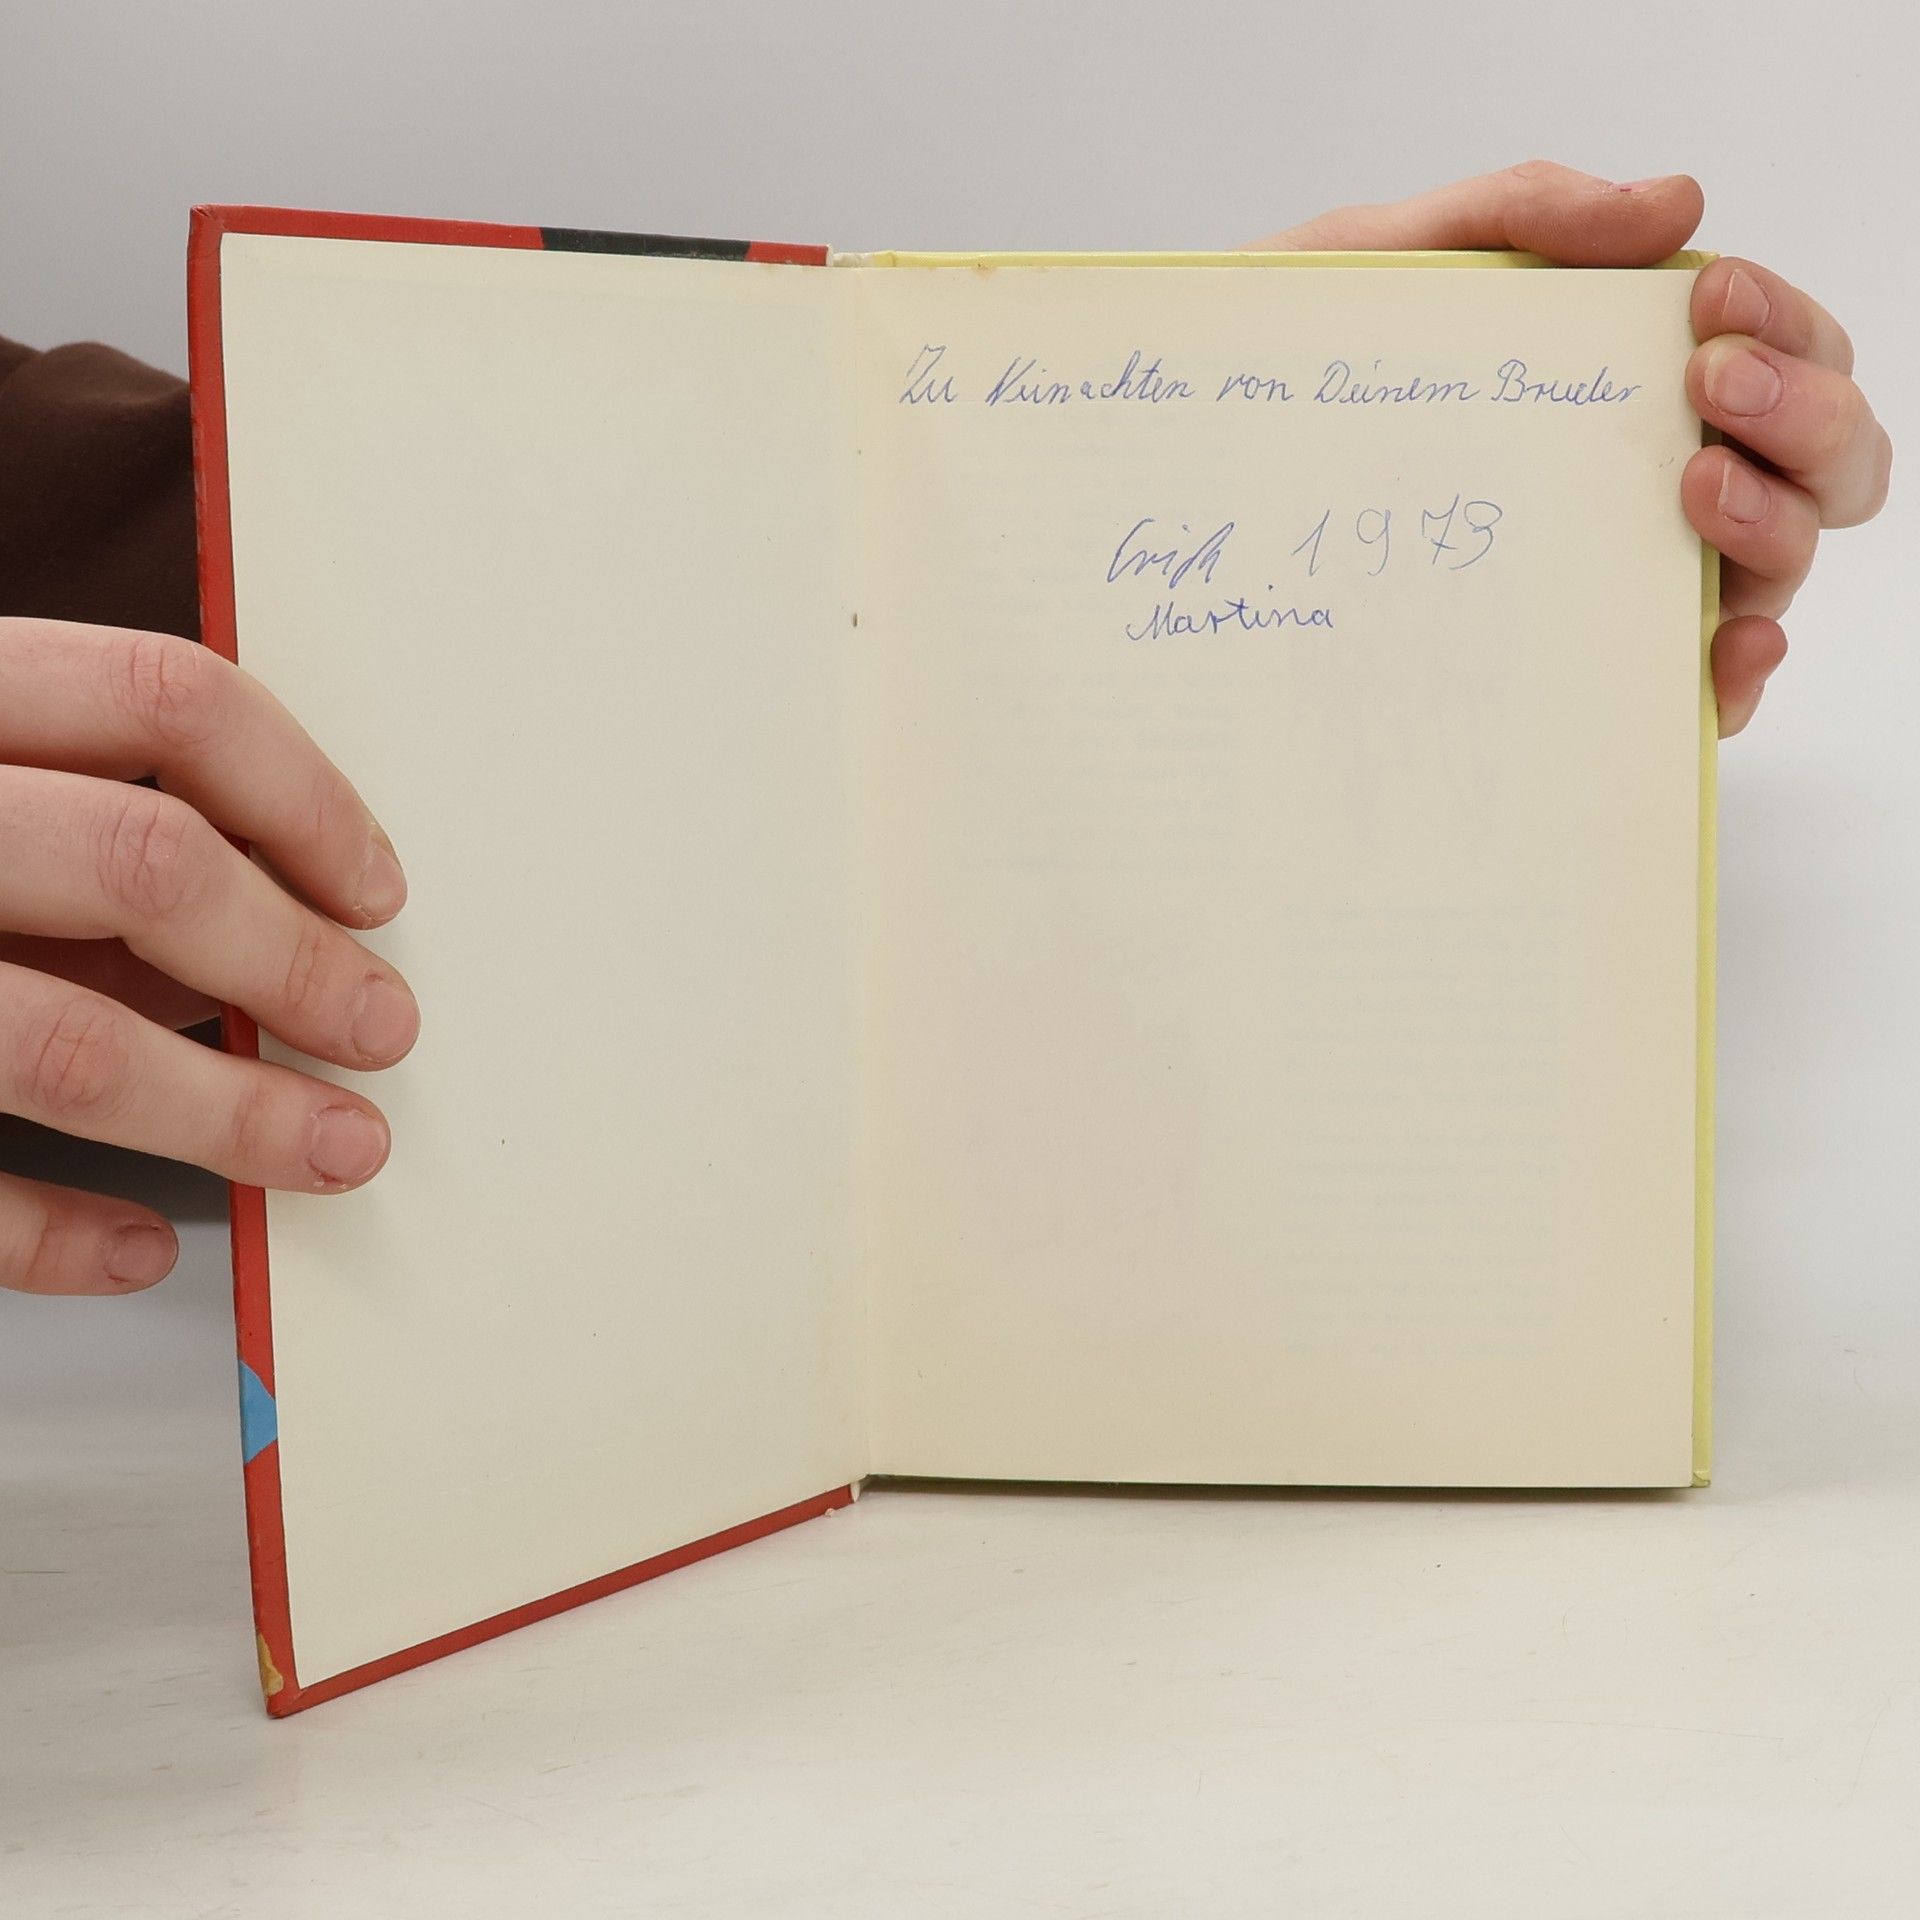 Zu Weinachten von Deinem Bruder
Erich 1973
Martina